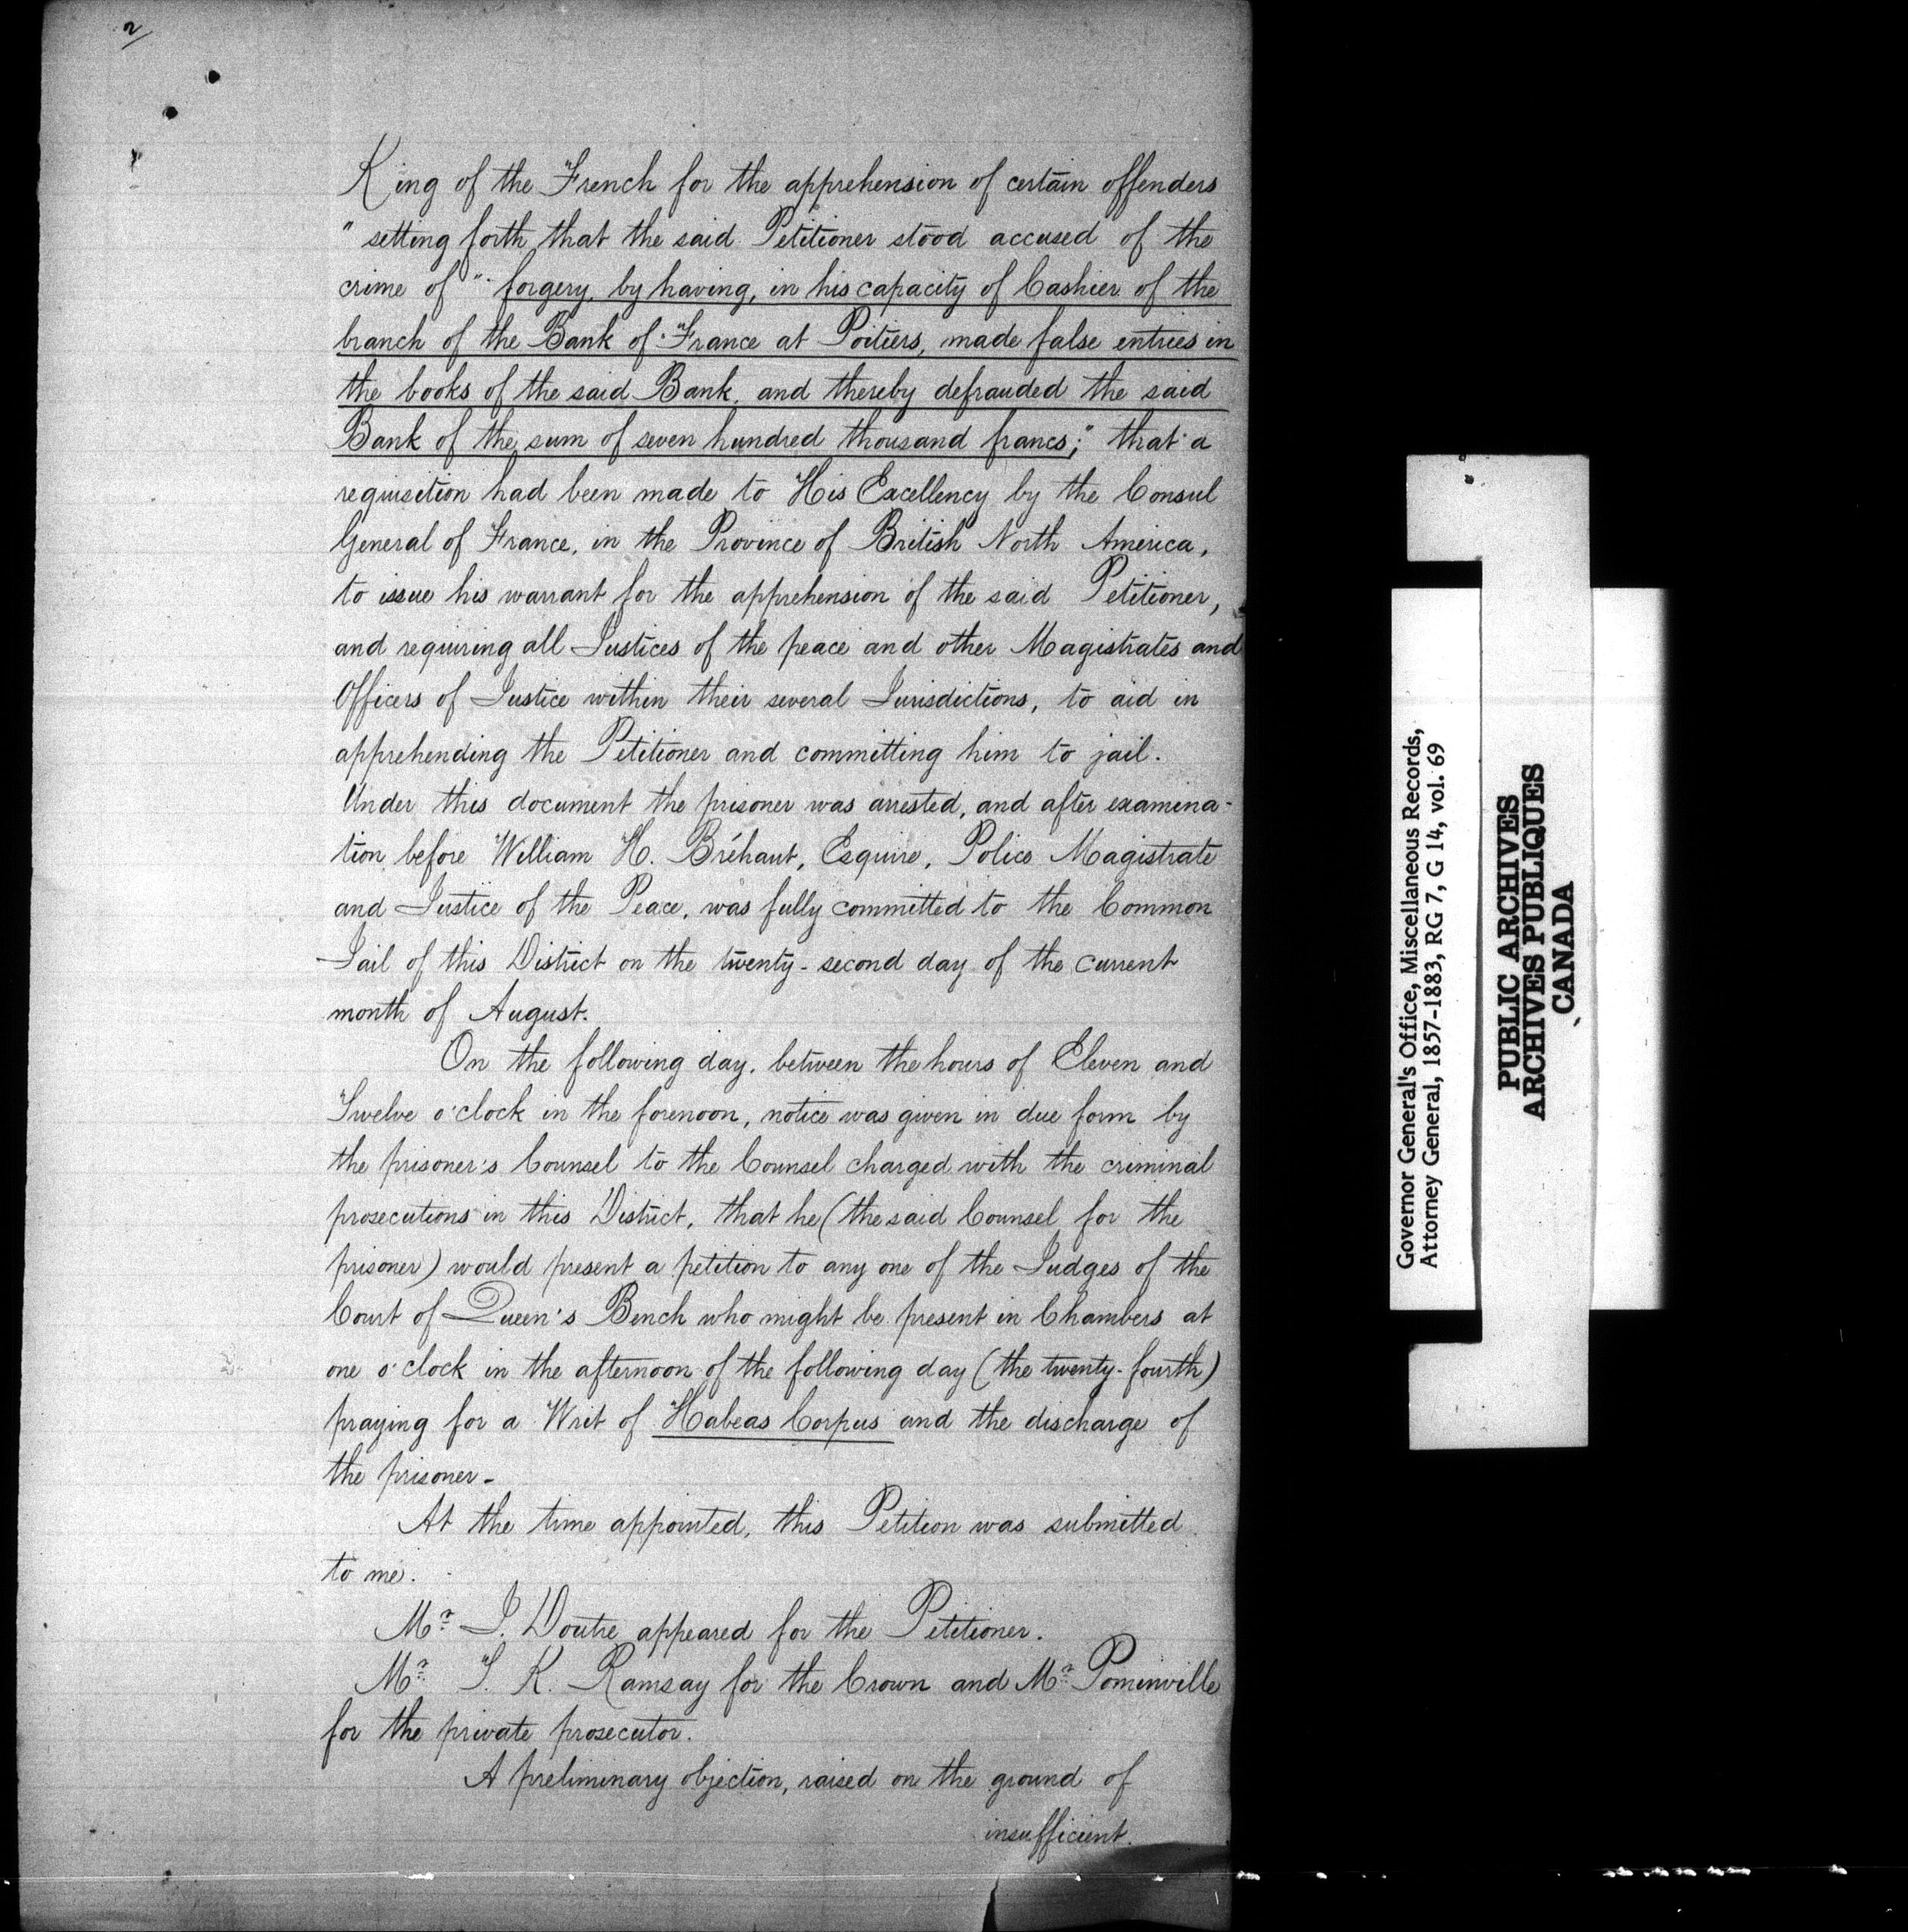 2/
King of the French for the apprehension of certain offenders
" setting forth that the said Petitioner stood accused of the
crime of " forgery, by having, in his capacity of Cashier of the
branch of the Bank of France at Poitiers, made false entries in
the books of the said Bank, and thereby defrauded the said
Bank of the sum of seven hundred thousand francs;" that a
requisition had been made to His Excellency by the Consul
General of France, in the Province of British North America,
to issue his warrant for the apprehension of the said Petitioner,
and requiring all Justices of the peace and other Magistrates and
Officers of Justice within their several Jurisdictions, to aid in
apprehending the Petitioner and committing him to jail.
Under this document the prisoner was arrested, and after examina-
tion before William H. Bréhaut, Esquire, Police Magistrate
and Justice of the Peace, was fully committed to the Common
Jail of this District on the twenty-second day of the current
month of August.
On the following day, between the hours of Eleven and
Twelve o'clock in the forenoon, notice was given in due form by
the prisoner's Counsel to the Counsel charged with the criminal
prosecutions in this District, that he (the said Counsel for the
prisoner) would present a petition to any one of the Judges of the
Court of Queen's Bench who might be present in Chambers at
one o'clock in the afternoon of the following day (the twenty-fourth)
praying for a Writ of Habeas Corpus and the discharge of
the prisoner-
At the time appointed, this Petition was submitted
to me.
Mr. J. Doutre appeared for the Petitioner.
Mr. T. K. Ramsay for the Crown and Mr. Pominville
for the private prosecutor.
A preliminary objection, raised on the ground of
insufficient.
Governor General's Office, Miscellaneous Records,
Attorney General, 1857-1883, RG 7, G 14, vol. 69
PUBLIC ARCHIVES
ARCHIVES PUBLIQUES
CANADA